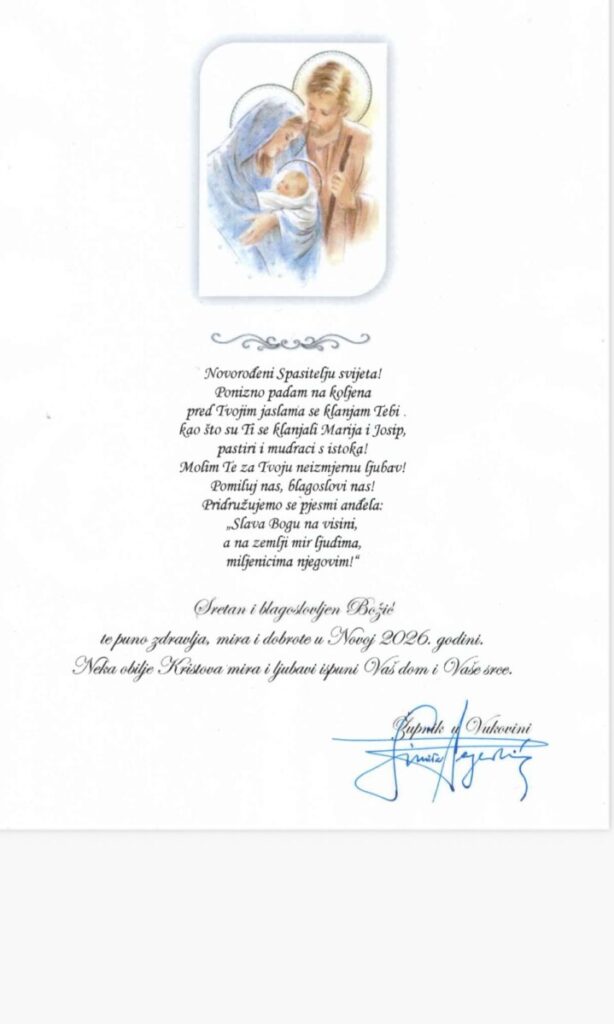 Novorođeni Spasitelju svijeta!
Ponizno padam na koljena
pred Tvojim jaslama se klanjam Tebi .
kao što su Ti se klanjali Marija i Josip,
pastiri i mudraci s istoka!
Molim Te za Tvoju neizmjernu ljubav!
Pomiluj nas, blagoslovi nas!
Pridružujemo se pjesmi anđela:
„Slava Bogu na visini,
a na zemlji mir ljudima,
miljenicima njegovim!“
Sretan i blagoslovljen Božić
te puno zdravlja, mira i dobrote u Novoj 2026. godini.
Neka obilje Kristova mira i ljubavi ispuni Vaš dom i Vaše srce.
Župnik u Vukovini